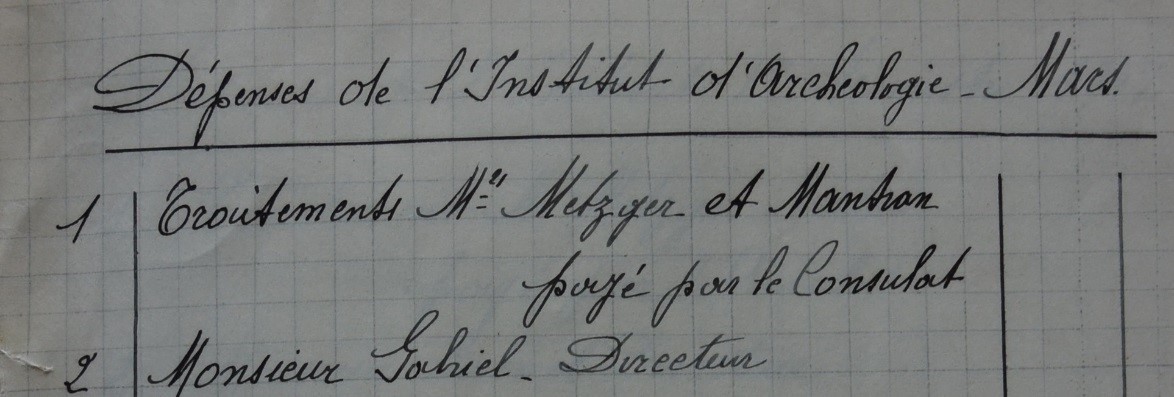 Dépenses de l'Institut d'Archeologie - Mars.
1 Traitements Mrs Metzger et Mantran
payé par le Consulat
2 Monsieur Gabriel - Directeur